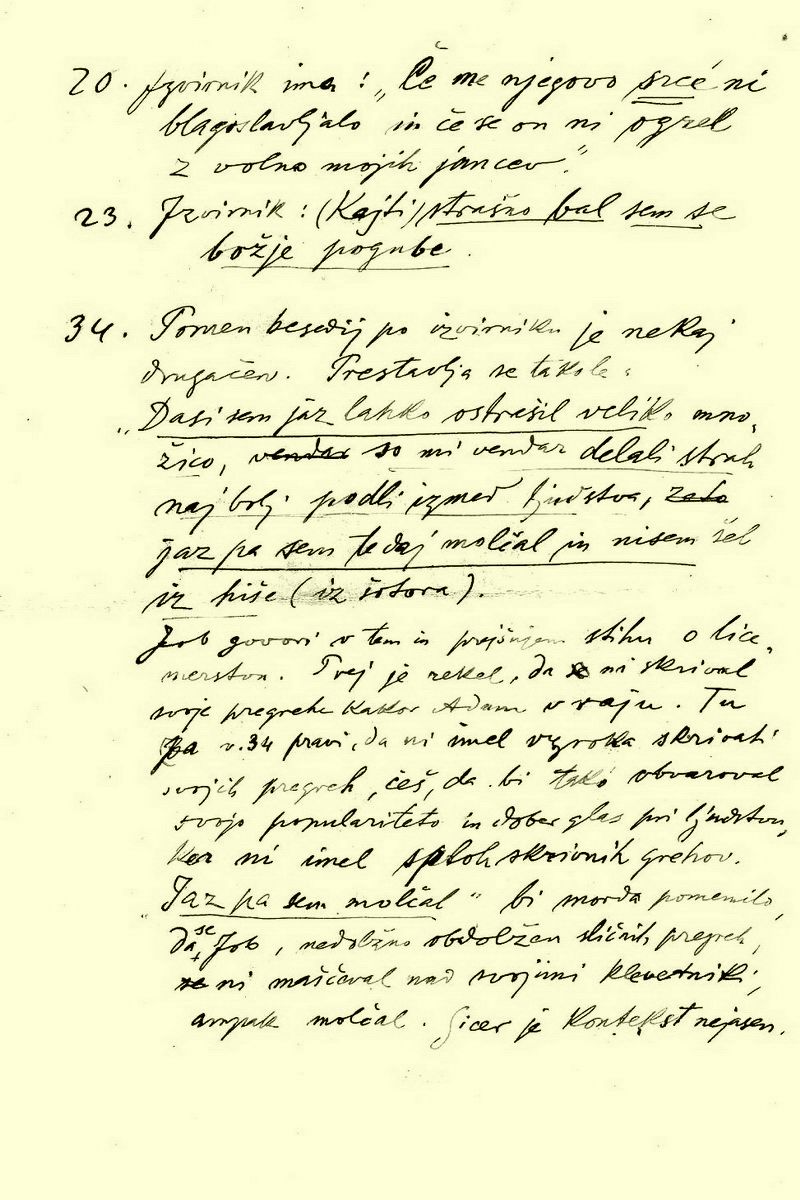 20. Izvirnik ima: „Če me njegovo srcé ni
blagoslavljalo in če se on ni ogrel
z volno mojih jancev."
23. Izvirnik: (Kajti) strašno bal sem se
božje pogube.
34. Pomen besedij po izvirniku je nekaj
drugačen. Prestavlja se takole:
„Dasi sem jaz lahko ostrašil veliko mno-
žico, vendar so mi vendar delali strah
najbolj podli izmed ljudstva, zato
jaz pa sem tedaj molčal in nisem šel
iz hiše (iz šotora).
Job govori v tem in prejšnjem stihu o lice-
merstvu. Prej je rekel, da se ni skrival
svoje pregrehe kakor Adam v raju. Tu
pa v. 34 pravi, da ni imel vzroka skrivati
svojih pregreh, češ, da bi takó obvaroval
svojo populariteto in dober glas pri ljudstvu,
ker ni imel sploh skrivnih grehov.
„Jaz pa sem molčal" bi morda pomenilo,
da se Job, nedolžno obdolžen sličnih pregreh,
se ni maščeval nad svojimi klevetniki,
ampak molčal. Sicer je kontekst nejasen.